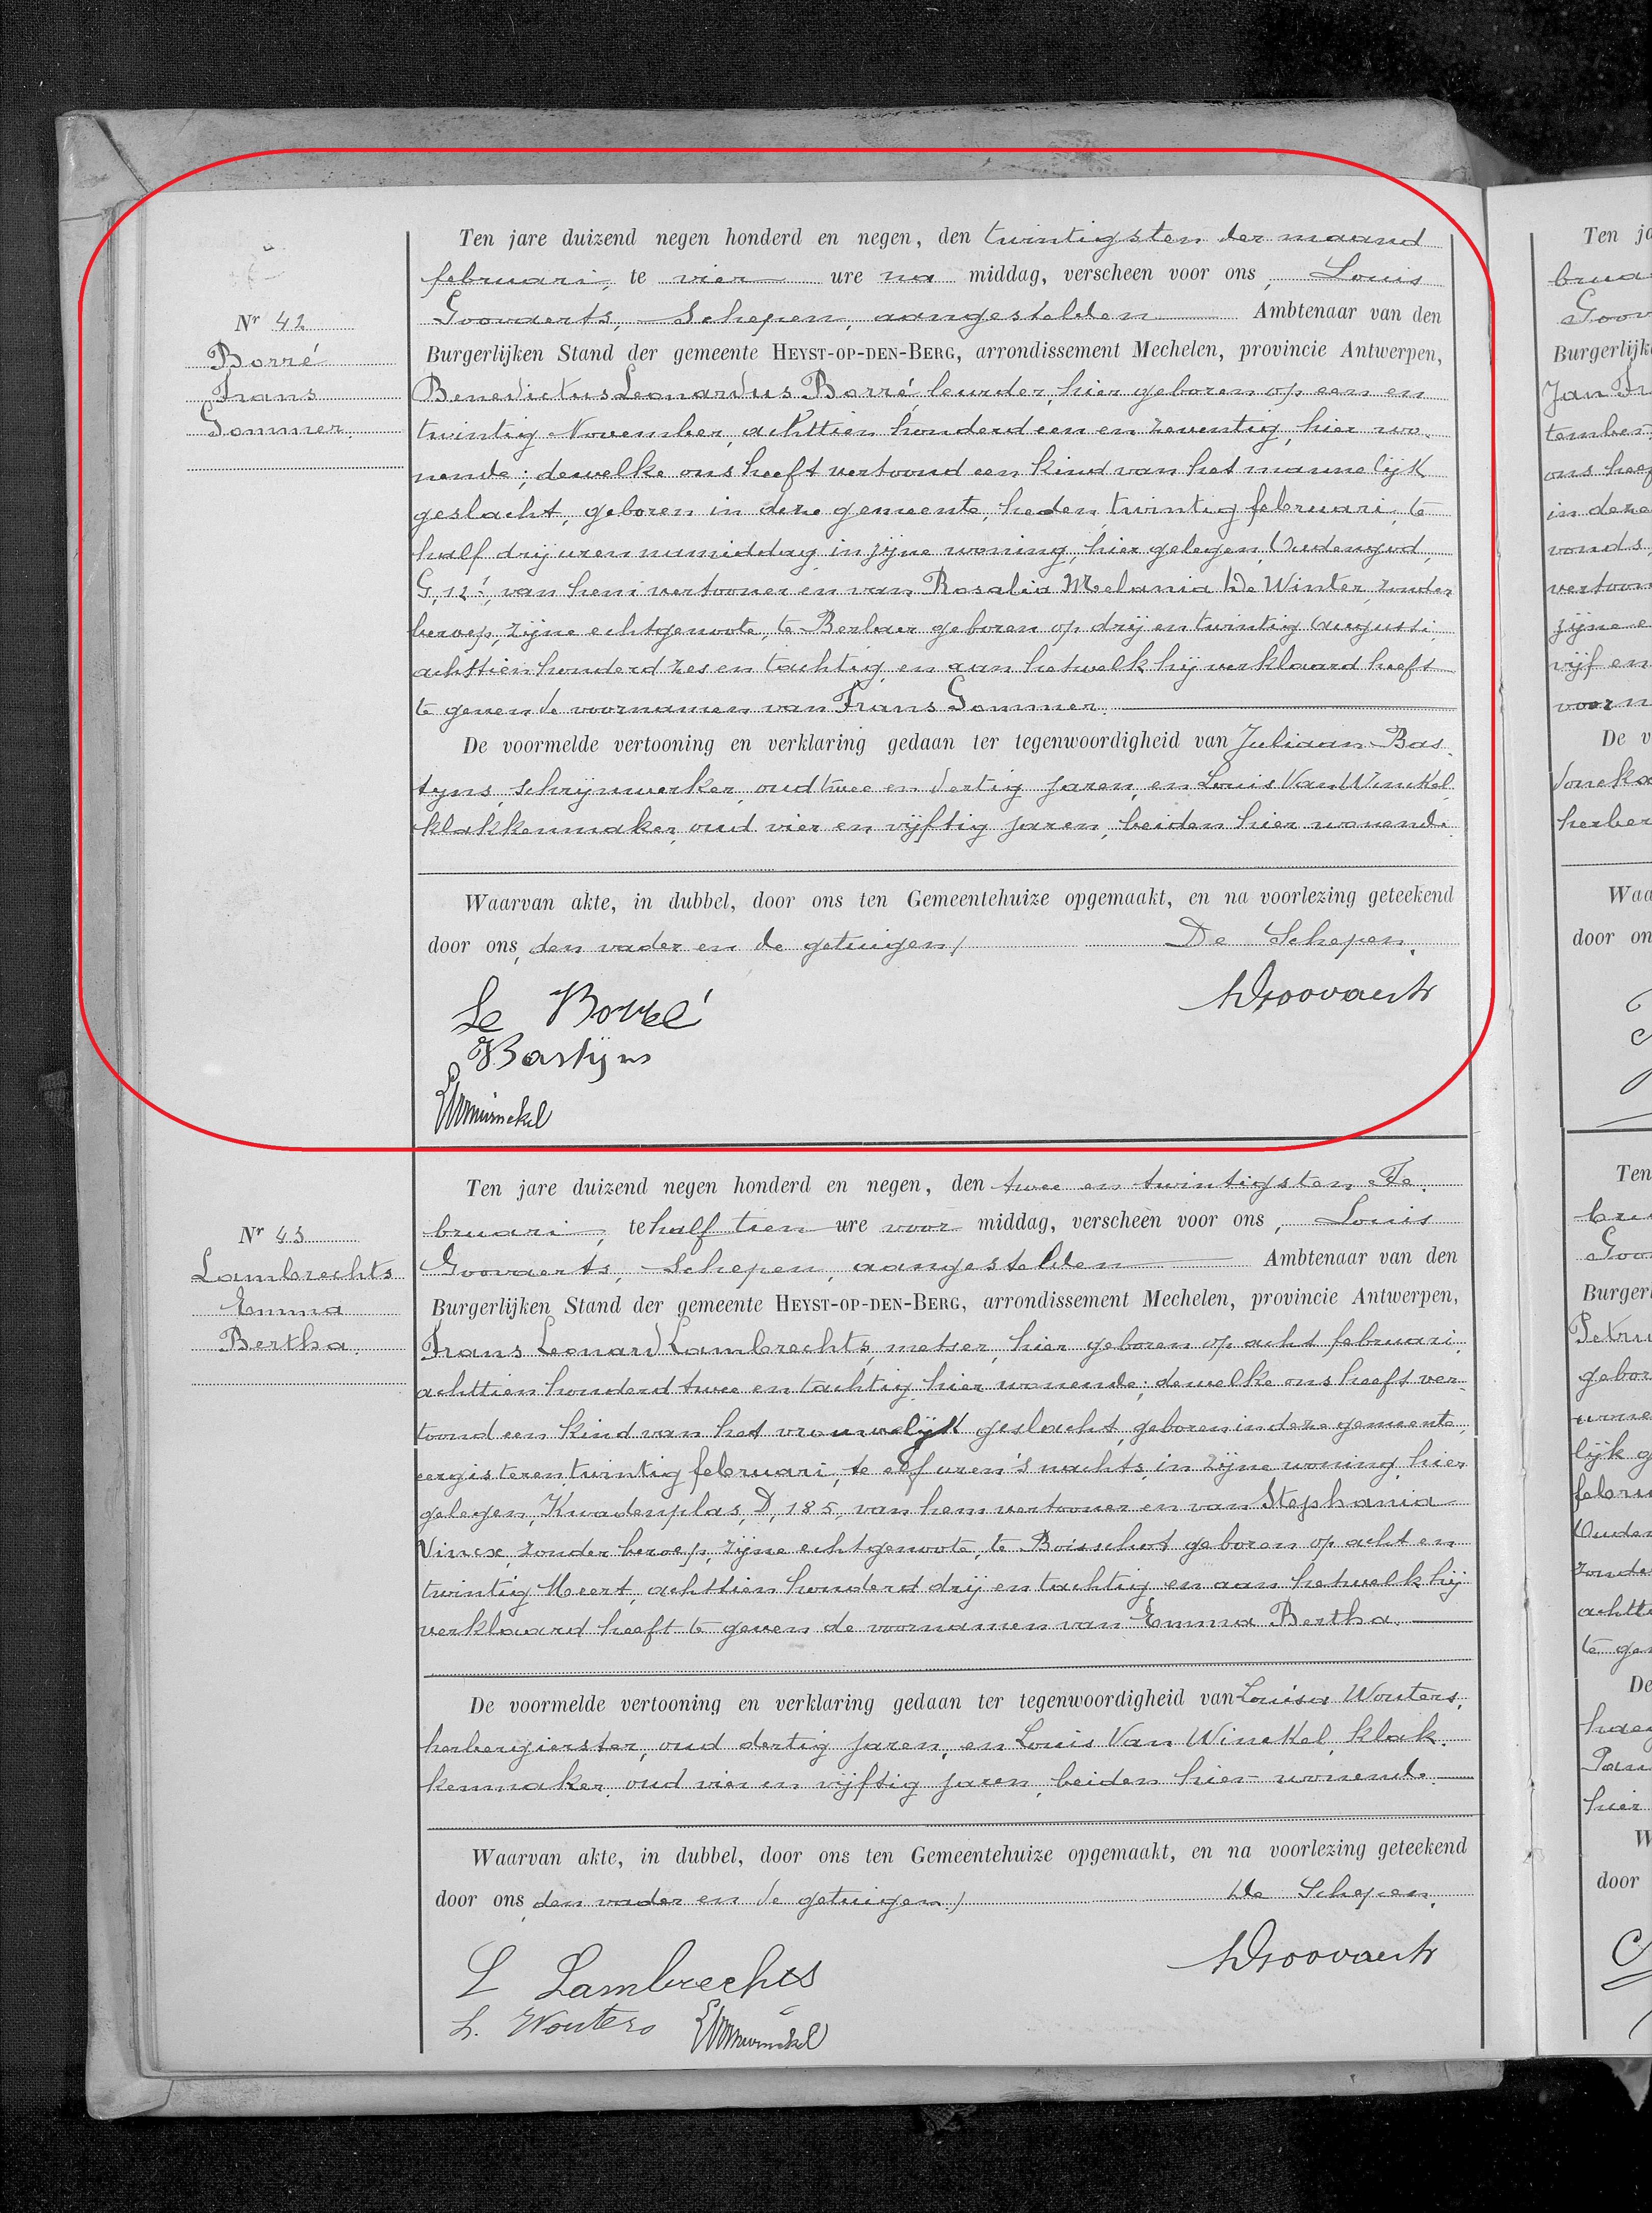 Ten jare duizend negen honderd en negen, den twintigsten der maand
februari, te vier ure na middag, verscheen voor ons, Louis
Goovaerts, Schepen, aangestelden Ambtenaar van den
Nr 42
Borré
Frans
Gommer.
Burgerlijken Stand der gemeente HEYST-OP-DEN-BERG, arrondissement Mechelen, provincie Antwerpen,
Benedictus Leonardus Borré, leurder, hier geboren op een en
twintig November, achttien honderd een en zeventig, hier wo-
nende; dewelke ons heeft vertoond een kind van het mannelijk
geslacht, geboren in deze gemeente, heden twintig februari, te
half drij uren namiddag, in zijne woning, hier gelegen, Oudengod,
G, 12¹, van hem vertooner en van Rosalia Melania De Winter, zonder
beroep, zijne echtgenoote, te Berlaer geboren op drij en twintig Augusti
achttien honderd zes en tachtig, en aan hetwelk hij verklaard heeft
te geven de voornamen van Frans Gommer.
De voormelde vertooning en verklaring gedaan ter tegenwoordigheid van Juliaan Bas-
tyns, schrijnwerker, oud twee en dertig jaren, en Louis Van Winckel,
klakkenmaker, oud vier en vijftig jaren, beiden hier wonende.
Waarvan akte, in dubbel, door ons ten Gemeentehuize opgemaakt, en na voorlezing geteekend
door ons, den vader en de getuigen./ De Schepen,
Le Borré
Bastyns
LVanwinckel
LGoovaerts
Ten jare duizend negen honderd en negen, den twee en twintigsten Fe-
bruari, te half tien ure voor middag, verscheen voor ons, Louis
Goovaerts, Schepen, aangestelden Ambtenaar van den
Nr 43
Lambrechts
Emma
Bertha.
Burgerlijken Stand der gemeente HEYST-OP-DEN-BERG, arrondissement Mechelen, provincie Antwerpen,
Frans Leonard Lambrechts, metser, hier geboren op acht februari
achttien honderd twee en tachtig, hier wonende; dewelke ons heeft ver-
toond een kind van het vrouwelijk geslacht, geboren in deze gemeente,
eergisteren twintig februari, te elf uren 's nachts, in zijne woning, hier
gelegen, Kwadenplas, D, 185, van hem vertooner en van Stephania
Vinex, zonder beroep, zijne echtgenoote, te Boisschot geboren op acht en
twintig Meert, achttien honderd drij en tachtig en aan hetwelk hij
verklaard heeft te geven de voornamen van Emma Bertha.
De voormelde vertooning en verklaring gedaan ter tegenwoordigheid van Louisa Wouters,
herbergierster, oud dertig jaren, en Louis Van Winckel, klak-
kenmaker, oud vier en vijftig jaren, beiden hier wonende.
Waarvan akte, in dubbel, door ons ten Gemeentehuize opgemaakt, en na voorlezing geteekend
door ons, den vader en de getuigen./ De Schepen,
L Lambrechts
L. Wouters LVanwinckel
LGoovaerts